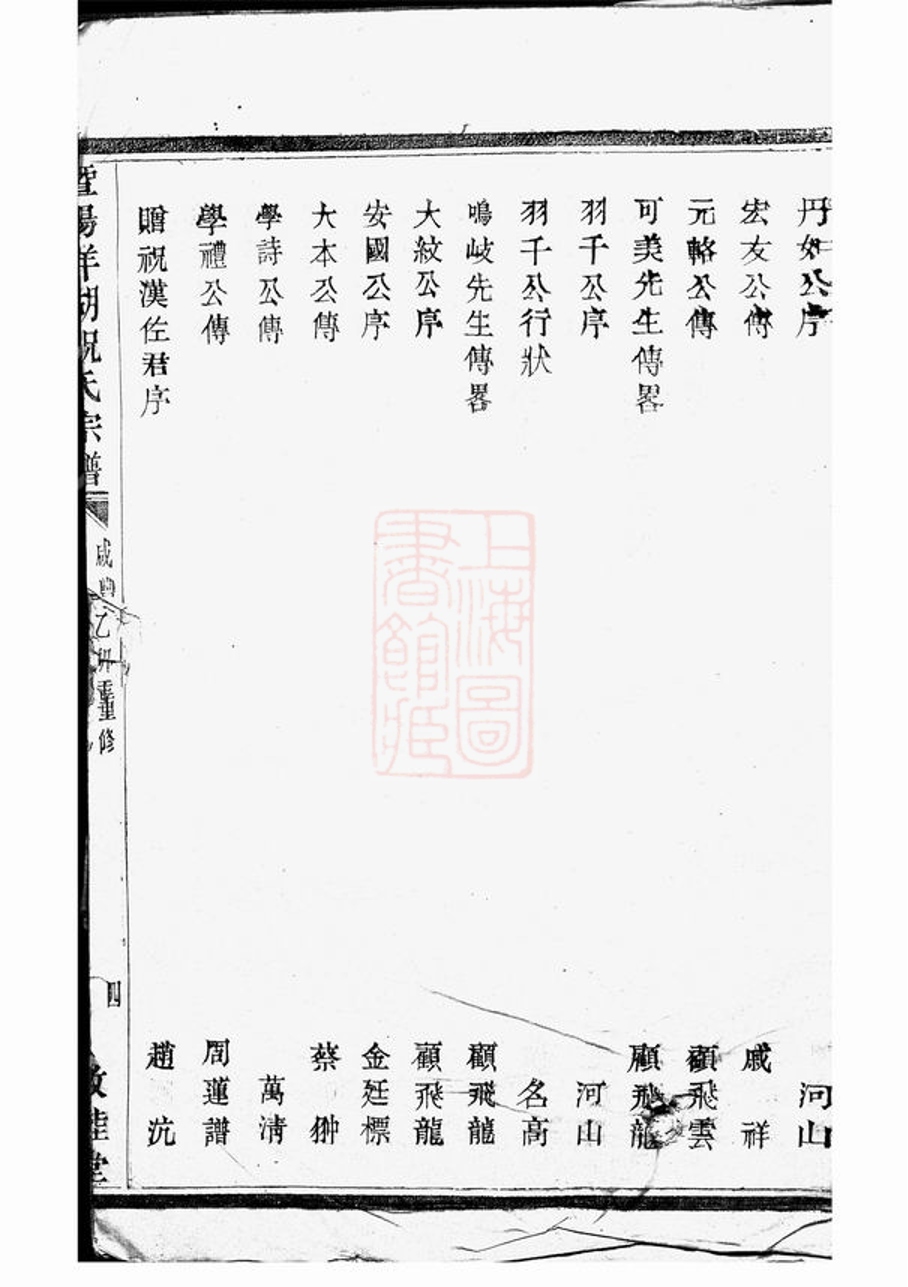 丹如公序 河山
宏友公傳 戚祥
元輅公傳 顧飛雲
可美先生傳畧 顧飛龍
羽千公序 河山
羽千公行狀 名高
鳴岐先生傳畧 顧飛龍
大紋公序 顧飛龍
安國公序 金廷標
大本公傳 蔡翀
學詩公傳 萬淸
學禮公傳 周蓮譜
贈祝漢佐君序 趙沆
暨陽羊湖祝氏宗譜
咸豐乙卯重修
四
桂堂
上海圖書館藏